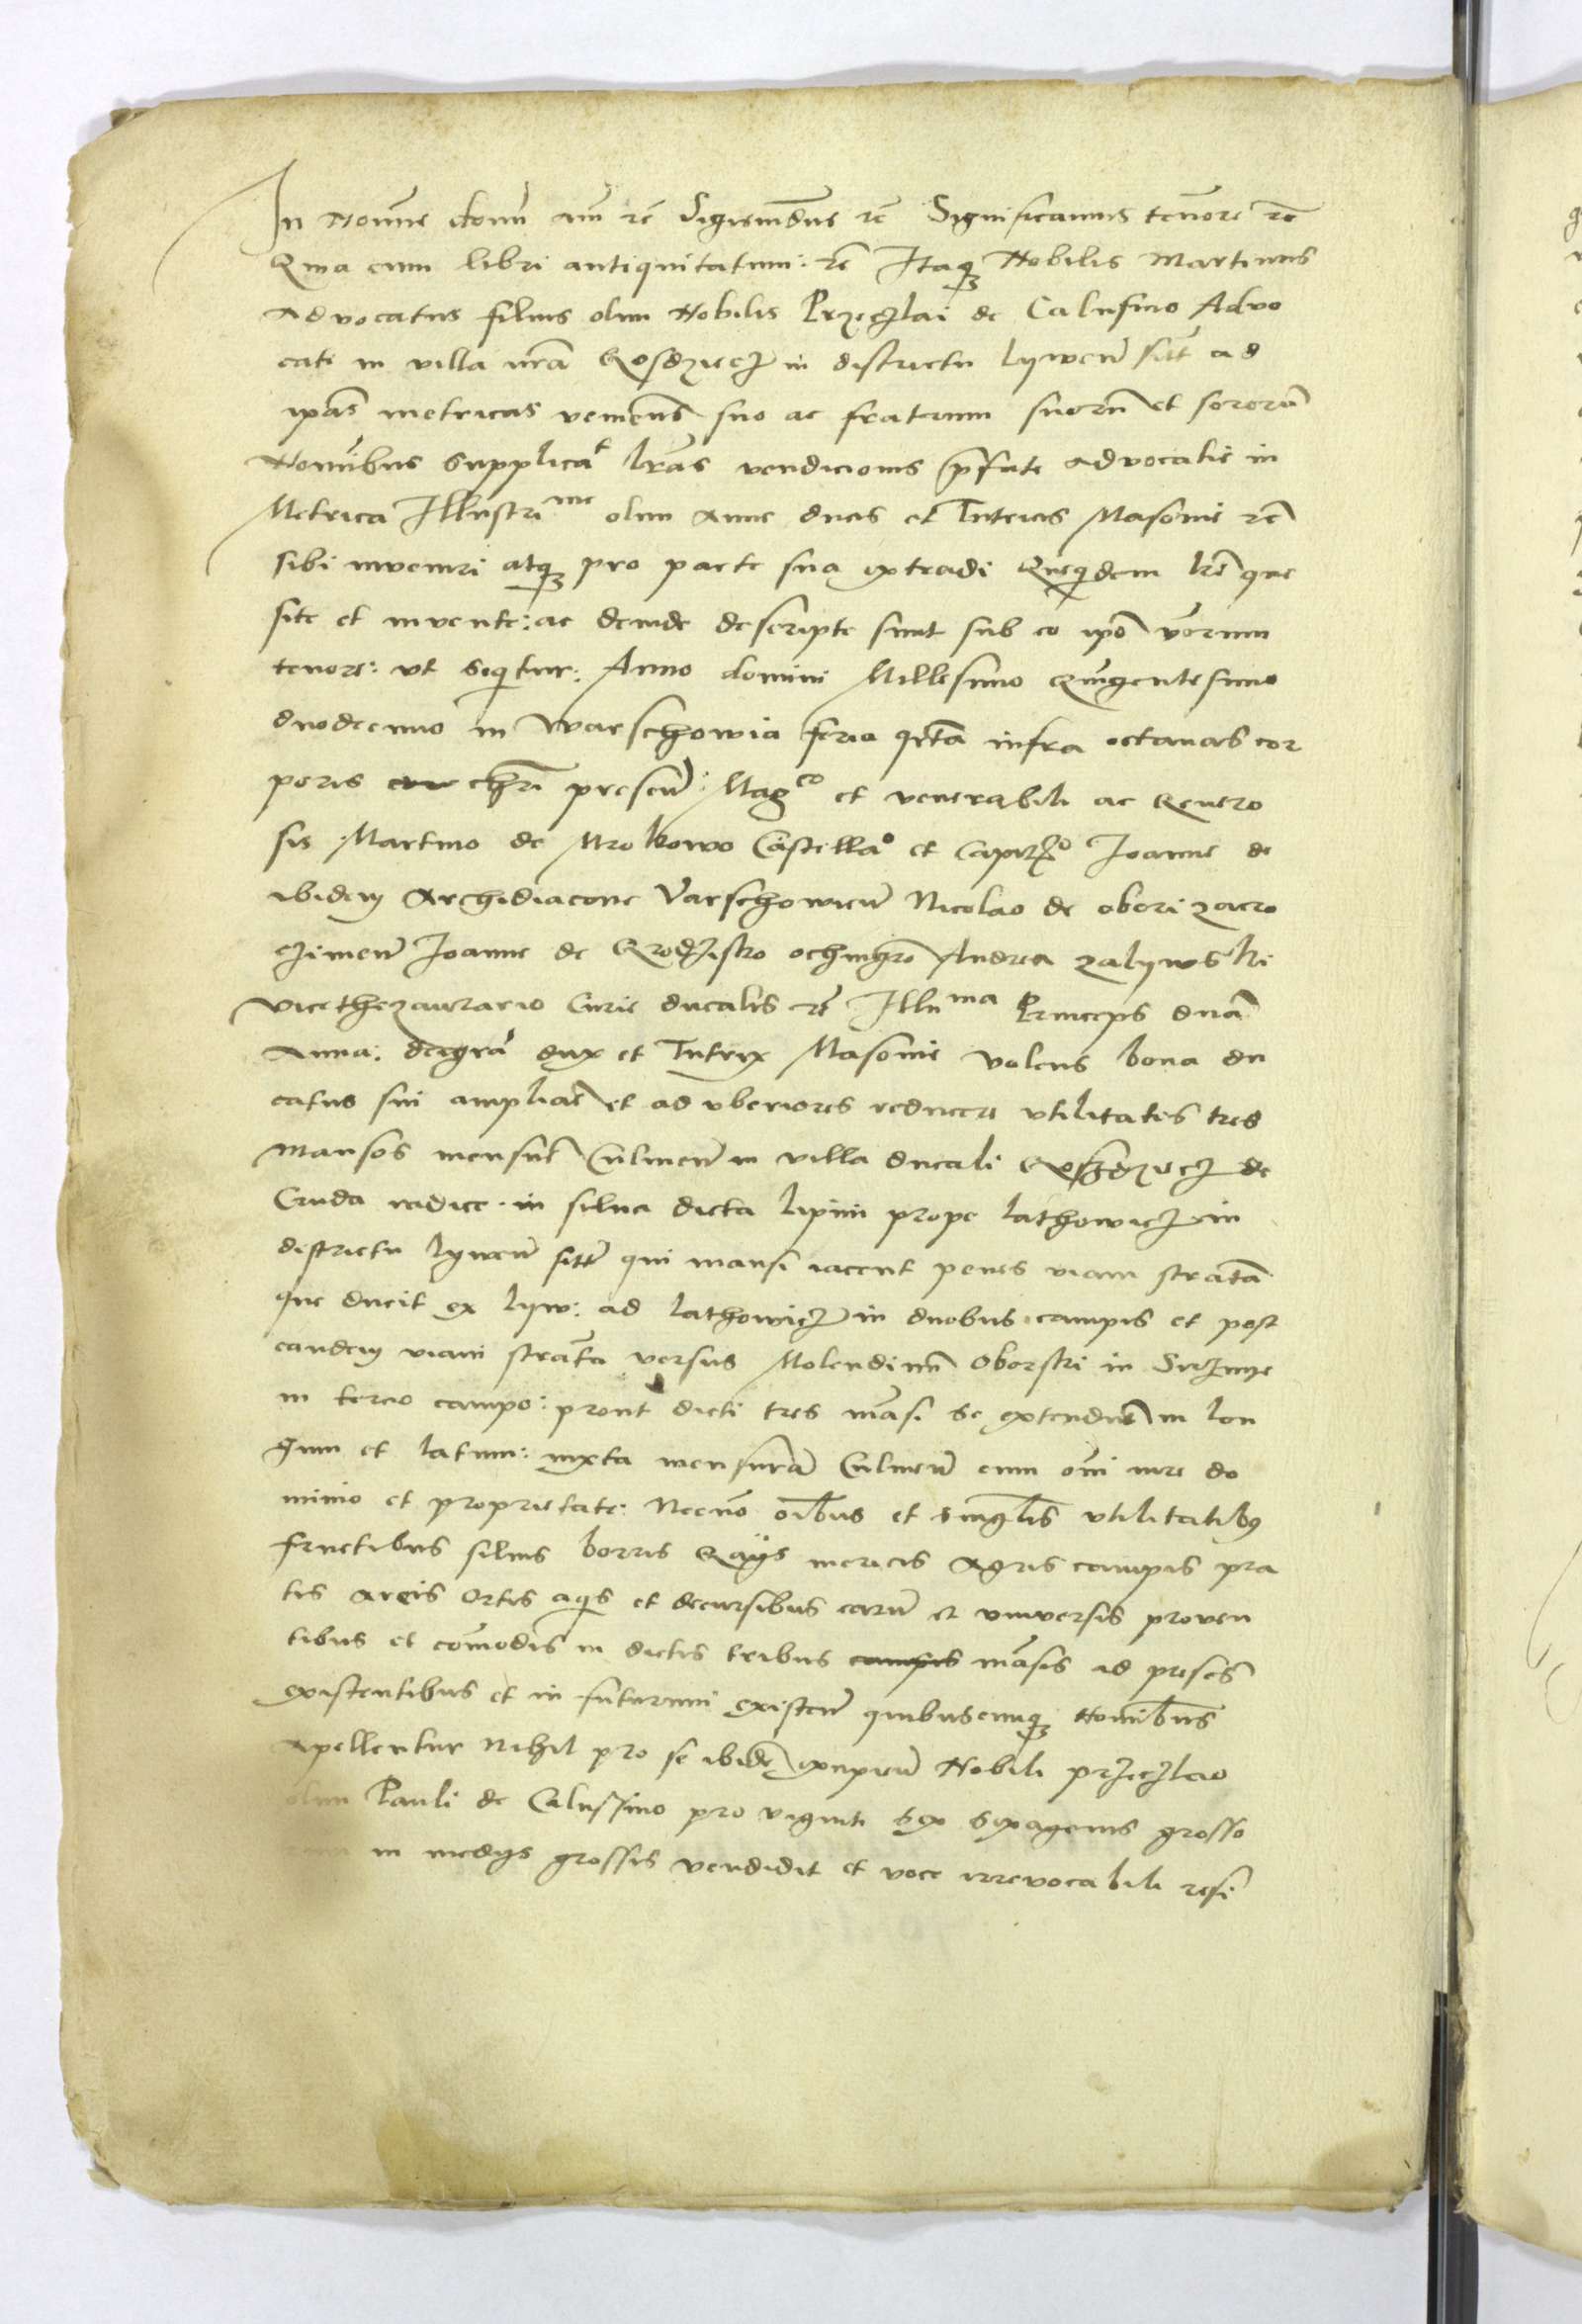 In Nomine domi am̄ rc̄ Sigismūdus rc̄ Significamus tenore rc̄
Qma cum libri antiquitatum: rc̄ Itaq Nobilis Martinus
Advocatus filius olim Nobilis Przeczlai de Calusino Advo
cati in villa nrā Rosdziecz in districtu lywcn̄ sitt̄ ad
ipās metricas venieñs suo ac fratrum suorū et sororū
Nomībus supplicat lrās vendicionis p̄fate advocatie in
Metrica Illustri me olim Anne ducis et Tutricis Masovie rc̄
sibi inveniri atq pro parte sua extradi Quequidem lrē que
site et invente: ac deinde descripte sunt sub eo ipō verūm
tenore: ut sequitur: Anno domini Millesimo Quīgentesimo
duodecimo in Warschowia feria qrta infra octauas cor
poris chri presen̄: Magco et venerabili ac Genero
sis Martino de Mrokowo Castellao et Capitao Joanne de
ibidem Archidiacone Varschowien̄ Nicolao de obori zacro
czimen̄ Joanne de Grodzistro ochmgrō Andrea zalywski
vicethezaurario Curie ducalis rc̄ Illuma Princeps dnā
Anna: deigrā dux et Tutrix Masovie volens bona du
catus sui ampliare et ad uberiores reducere utilitates tres
Mansos mensure Culmen̄ in villa ducali Roszdziecz de
Cruda radice in silua dicta lipini prope lathowicz in
districtu lywcn̄ sitt̄ qui mansi iacent penes viam stratā
que ducit ex lyw: ad lathowicz in duobus campis et post
eandem viam stratā versus Molendinū oborstri in
in tercio campo: prout dicti tres māsi se extendūt in lon
gum et latum: iuxta mensurā Culmen̄ cum om̄i iure do
minio et proprietate: Necnō oībus et singlīs utilitatibus
fructibus siluis borris Gays mericis Agris campis pra
tis Areis Ortis aqis et decursibus earū et universis proven
tibus et cōmodis in dictis tribus campis māsis ad presēs
existentibus et in futurum existen̄ quibuscumq Nomībus
Apellentur Nihil pro se ibidē excipien̄ Nobili przeczlao
olim Pauli de Calussino pro viginti sex sexagenis grosso
in medys grossis vendidit et voce irrevocabili resi